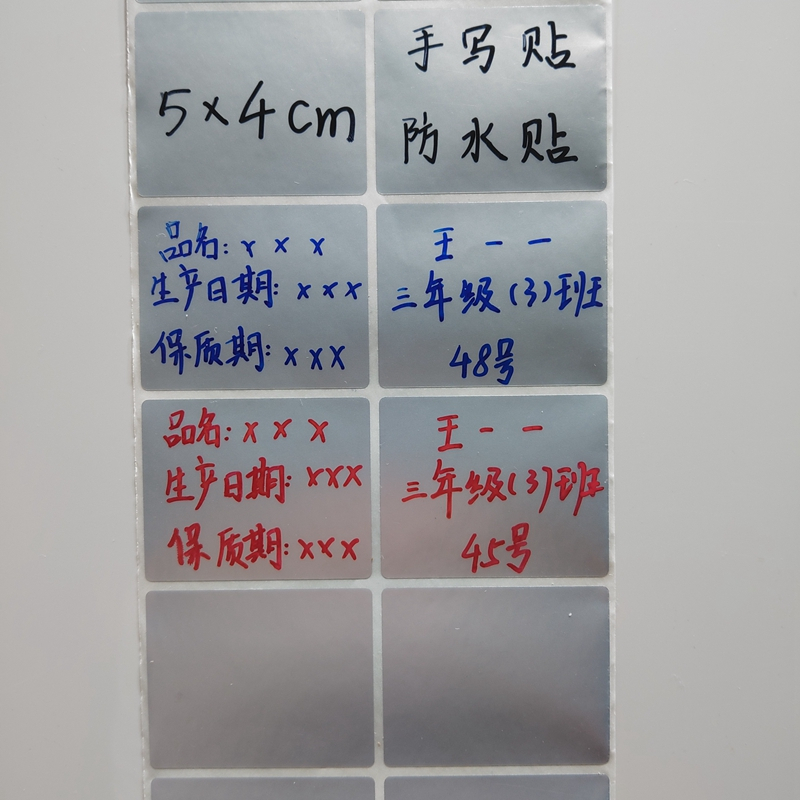 5×4cm
手写贴
防水贴
品名: x x x
生产日期: x x x
保质期: x x x
王一一
三年级(3)班
48号
品名: x x x
生产日期: x x x
保质期: x x x
王一一
三年级(3)班
45号